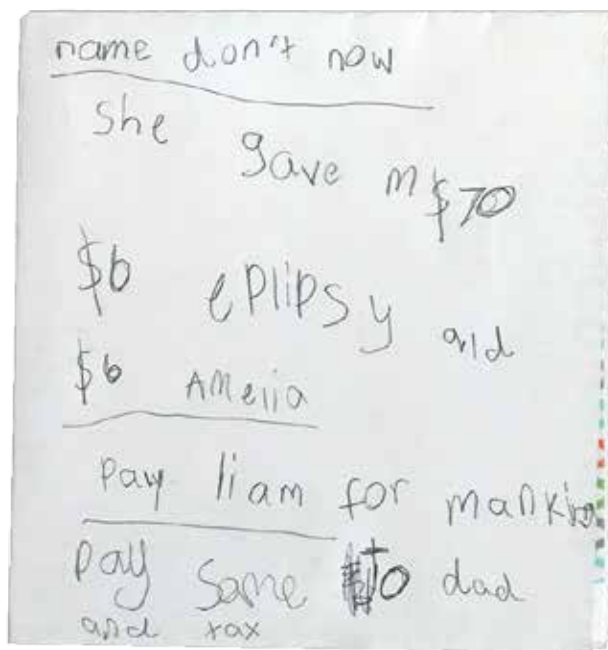 name don't now
She gave m $70
$6 eplipsy and
$6 Amelia
Pay liam for mankind
Pay same to dad
and tax